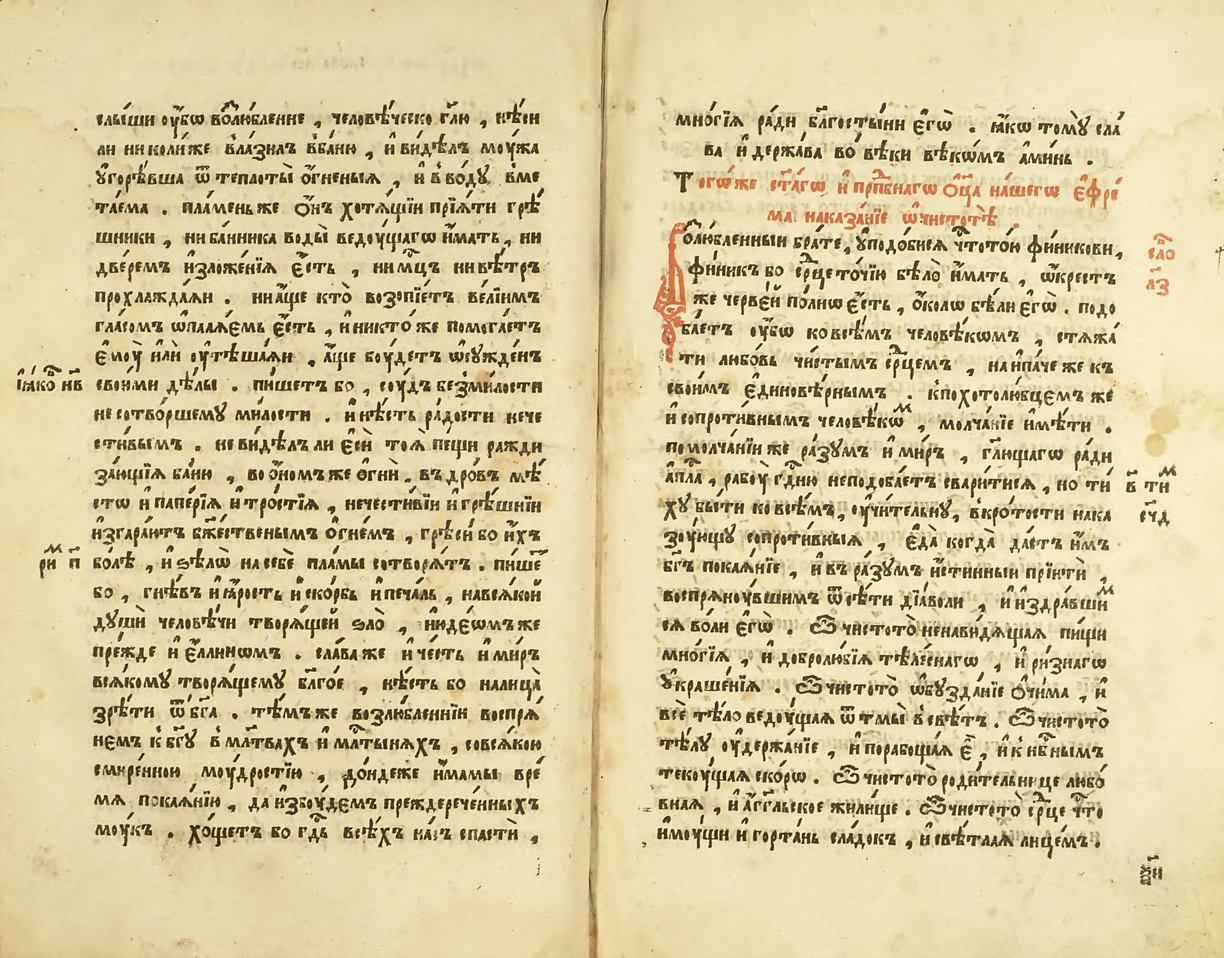 слы́ши ᲂу҆́бѡ во́любленне , человѣ́ческо гл҃ю , нѣ́си
ли николи́же вла́зилъ в̾ба́ню , и҆ ви́дѣлъ моу́жа
ᲂу҆горѣ́вша ѿ теплоты̀ ѻ҆́гненыѧ , и҆ в̾ во́дꙋ вме
та́ема . пла́меньже ѻ҆́нъ хотѧ́щїи прїѧ́ти грѣ́
шники , ни ба́нника воды̀ ведꙋ́щагѡ и҆́мать , ни
две́ремъ и҆зложе́нїѧ є҆́сть , ни мц҃ъ ни вѣ́тръ
прохлажда́ѧи . ни а҆́ще кто̀ возопїе́тъ ве́лїимъ
гла́сомъ ѡ҆палѧ́емь є҆́сть , и҆ никто́же помога́етъ
є҆моу̀ и҆лѝ ᲂу҆тѣша́ѧи , а҆́ще боу́детъ ѡ҆сꙋжде́нъ
і҆а́ко н҃в
свои́ми дѣ́лы . пи́шетъ бо , соу́дъ безми́лости
не сотво́ршемꙋ ми́лости . и҆ нѣ́сть ра́дости нече
сти́вымъ . не ви́дѣлъ ли є҆сѝ тоѧ̀ пе́щи ражди
за́ющїѧ ба́ню , во ѻ҆́номъже ѻ҆гнѝ , въ дро́въ мѣ́
сто и҆ папе́рїѧ и҆ тро́стїѧ , нечести́вїи и҆ грѣ́шнїи
и҆згара́ютъ бж҃е́ственымъ ѻ҆гне́мъ , грѣсѝ бо и҆́хъ
ри п҃
бо́лѣ , и҆ ѕѣлѡ̀ на себѐ пла́мы сотворѧ́тъ . пи́ше
бо , гнѣ́въ и҆ ꙗ҆́рость и҆ ско́рбь и҆ печа́ль , на всѧ́кой
дꙋшѝ человѣ́чи творѧ́щей ѕло̀ , и҆юде́ѡмъ же
пре́жде и҆ є҆́ллинѡмъ . сла́ва же и҆ че́сть и҆ ми́ръ
всѧ́комꙋ творѧ́щемꙋ бл҃го́е , нѣ́сть бо на лица̀
зрѣ́ти ѿ бг҃а . тѣ́мъже возлю́бленнїи воспрѧ́
немъ к̾ бг҃ꙋ в̾ мл҃твахъ и҆ мл҃тынѧхъ , со всѧ́кою
смире́нною моу́дростїю , до́ндеже и҆́мамы вре́
мѧ покаѧ́нїю , да и҆збоу́демъ преждерече́нныхъ
моу́къ . хо́щетъ бо гд҃ь всѣ́хъ на́съ спастѝ ,
мно́гїѧ ра́ди бл҃госты́ни є҆гѡ̀ . ꙗ҆́кѡ томꙋ̀ сла́
ва и҆ держа́ва во́ вѣки вѣкѡ́мъ а҆ми́нь .
Тогѡ́же ст҃а́гѡ и҆ прп҃бнагѡ ѻ҆ц҃а̀ на́шегѡ є҆фре́
ма наказа́нїе ѡ҆ чистотѣ̀ .
сло л҃з
Во́любленныи бра́те , ᲂу҆подо́бисѧ чт҃ото́ю фи́никови ,
фи́никъ бо ср҃це то́чїю бѣ́ло и҆́мать , ѡ҆́крестъ
же черве́й по́лно є҆́сть , ѻ҆́колѡ бѣ́ли є҆гѡ̀ . подо
ба́етъ ᲂу҆́бѡ ко всѣ́мъ человѣ́кѡмъ , стѧжа́
ти любо́вь чи́стымъ ср҃цемъ , наипа́че же къ
свои́мъ є҆диновѣ́рнымъ . к̾ похотолю́бцемъ же
и҆ сопроти́внымъ человѣ́кѡм , молча́нїе и҆мѣ́ти .
по молча́нїи же ра́зꙋмъ и҆ ми́ръ , гл҃ющагѡ ра́ди
а҆пл҃а , рабоу̀ гд҃ню не подоба́етъ свари́тисѧ , но ти́
в҃ ти
хꙋ бы́ти ко всѣ́мъ , ᲂу҆чи́тельнꙋ , в̾ кро́тости нака
с҃ч҃д
зоу́ющꙋ сопроти́вныѧ , є҆да̀ когда̀ да́стъ и҆̀мъ
бг҃ъ покаѧ́нїе , и҆ въ ра́зꙋмъ и҆́стинныи прїитѝ ,
воспрѧноу́вшимъ ѿ сѣ́ти дїа́воли , и҆ и҆здра́вшим
сѧ во́ли є҆гѡ̀ . Ѽ чистото̀ ненави́дѧщаѧ пи́щи
мно́гїѧ , и҆ добролю́бїѧ тѣле́снагѡ , и҆ ри́знагѡ
ᲂу҆краше́нїѧ . Ѽ чистото̀ ѡ҆бꙋзда́нїе ѻ҆чи́ма , и҆
всѐ тѣ́ло ведоу́щаѧ ѿ тмы̀ в̾ свѣ́тъ . Ѽ чистото̀
тѣ́лꙋ ᲂу҆держа́нїе , и҆ порабоща́ѧ є҆̀ , и҆ к̾ нб҃нымъ
текоу́щаѧ ско́рѡ . Ѽ чистото̀ роди́тельнице любо́
внаѧ , и҆ а҆́гг҃льское жили́ще . Ѽ чистото̀ ср҃це чт҃о
и҆моу́щи и҆ горта́нь сла́докъ , и҆ свѣ́тлаѧ лице́мъ .